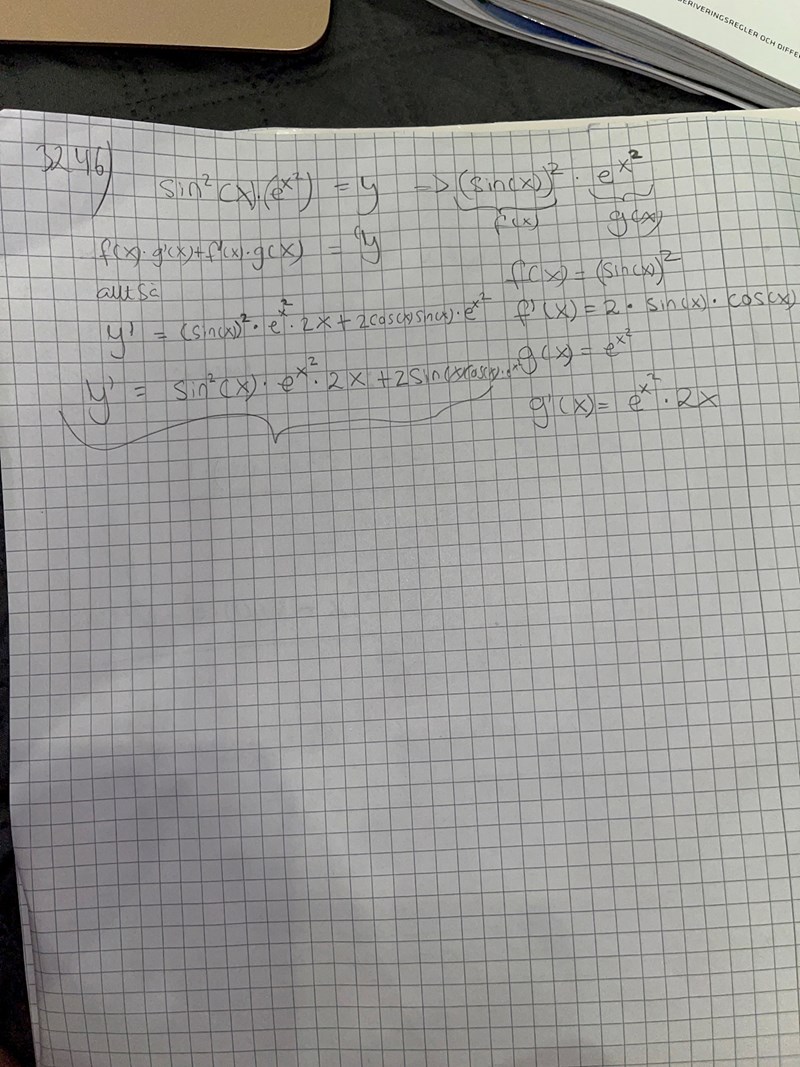 DERIVERINGSREGLER OCH DIFFE
3246)
sin²(x)·(e^x²) = y -> (sin(x))² · e^x²
f(x) g(x)
f(x)·g'(x)+f'(x)·g(x) = y
f(x) = (sin(x))²
allt så
f'(x) = 2 · sin(x) · cos(x)
y' = (sin(x))² · e^x² · 2x + 2cos(x)sin(x) · e^x²
g(x) = e^x²
y' = sin²(x) · e^x² · 2x + 2sin(x)cos(x) · e^x²
g'(x) = e^x² · 2x